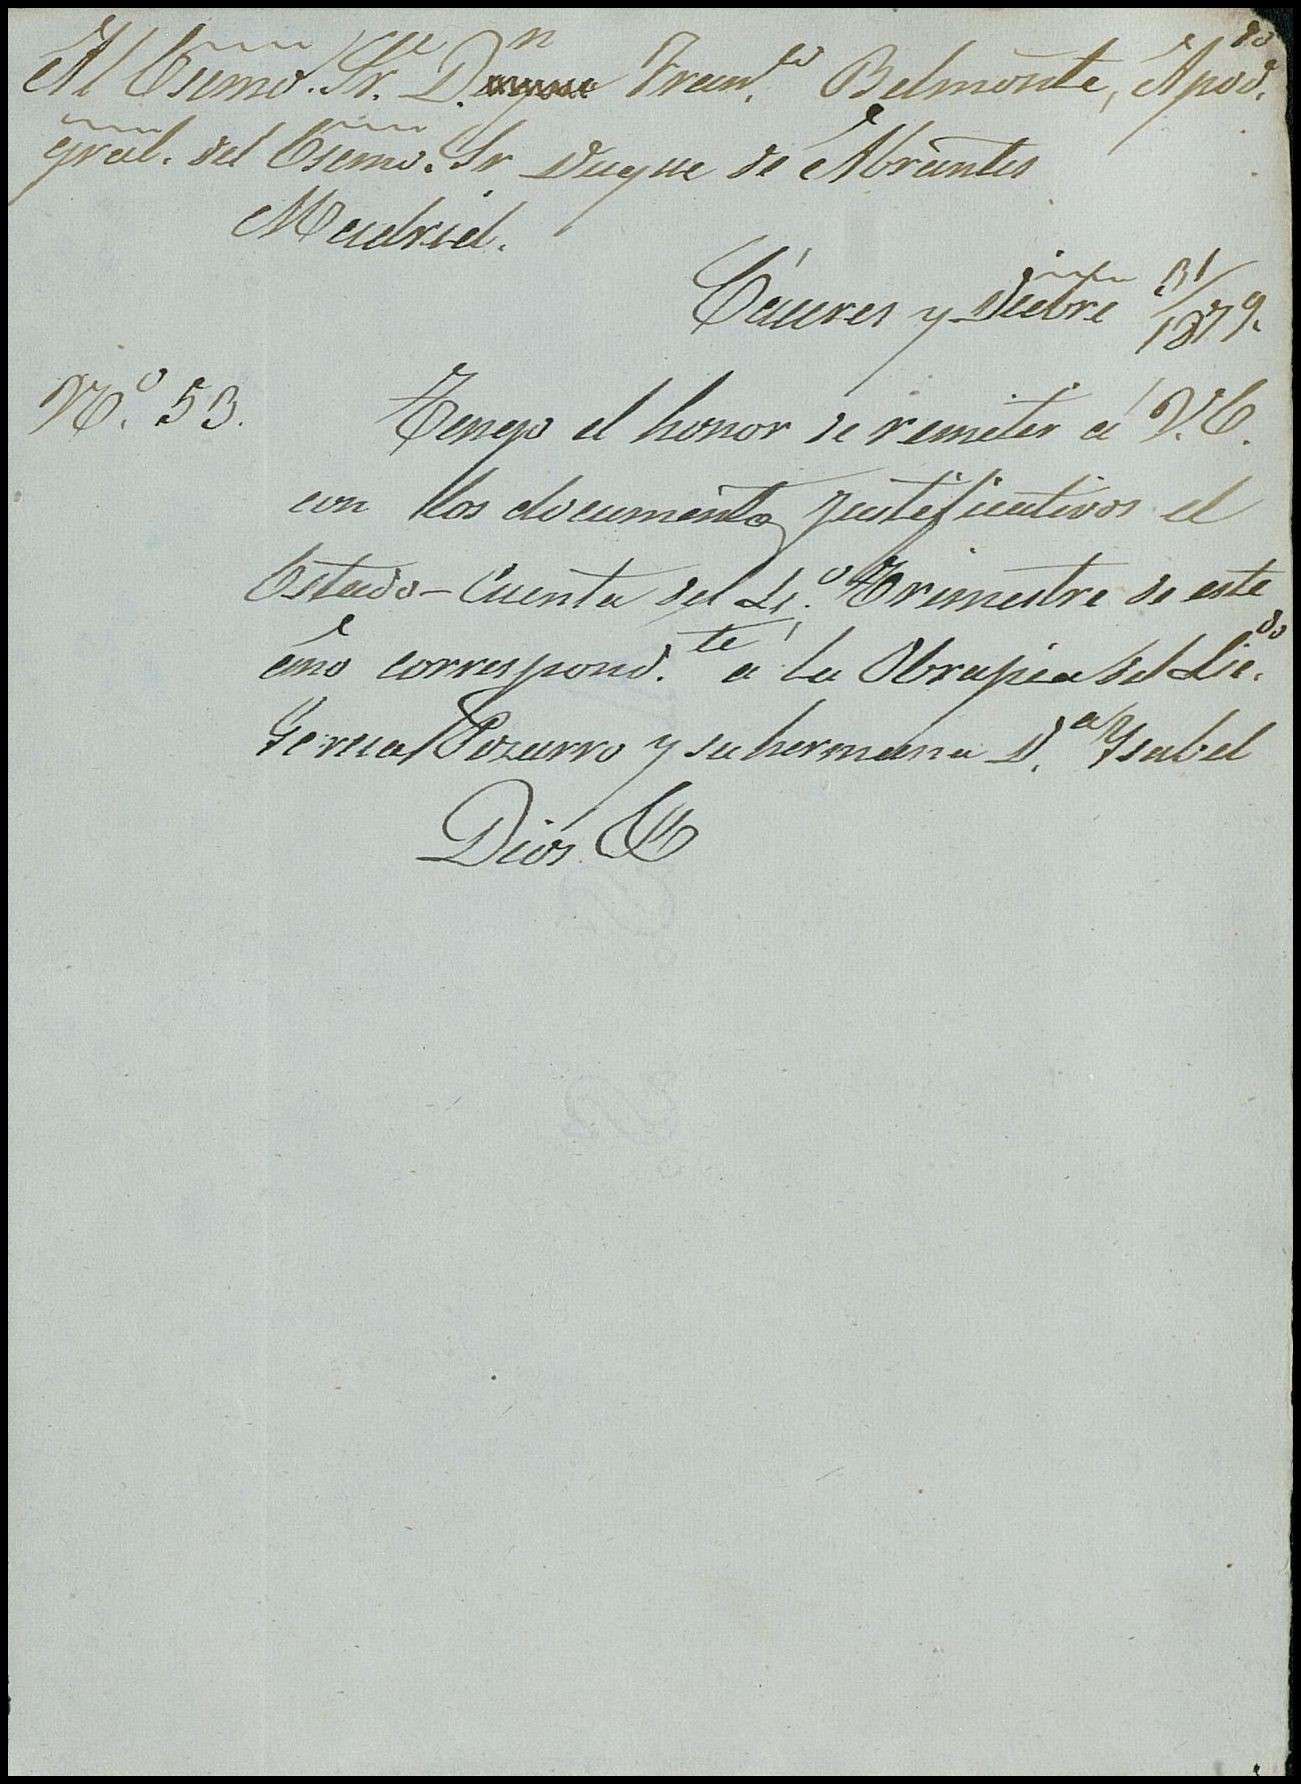 Al Esmo. Sr. D.n Fran.co Belmonte, Apod.do
gral. del Esmo. Sr Duque de Abrantes
Madrid.
Cáceres y Dicbre 31/1879.
N.o 53.
Tengo el honor de remitir á V.E.
con los documentos justificativos el
Estado-Cuenta del 4.o Trimestre de este
año correspond.te á la Obrapia del Lic.do
Gernal Pizarro y su hermana D.a Ysabel
Dios &